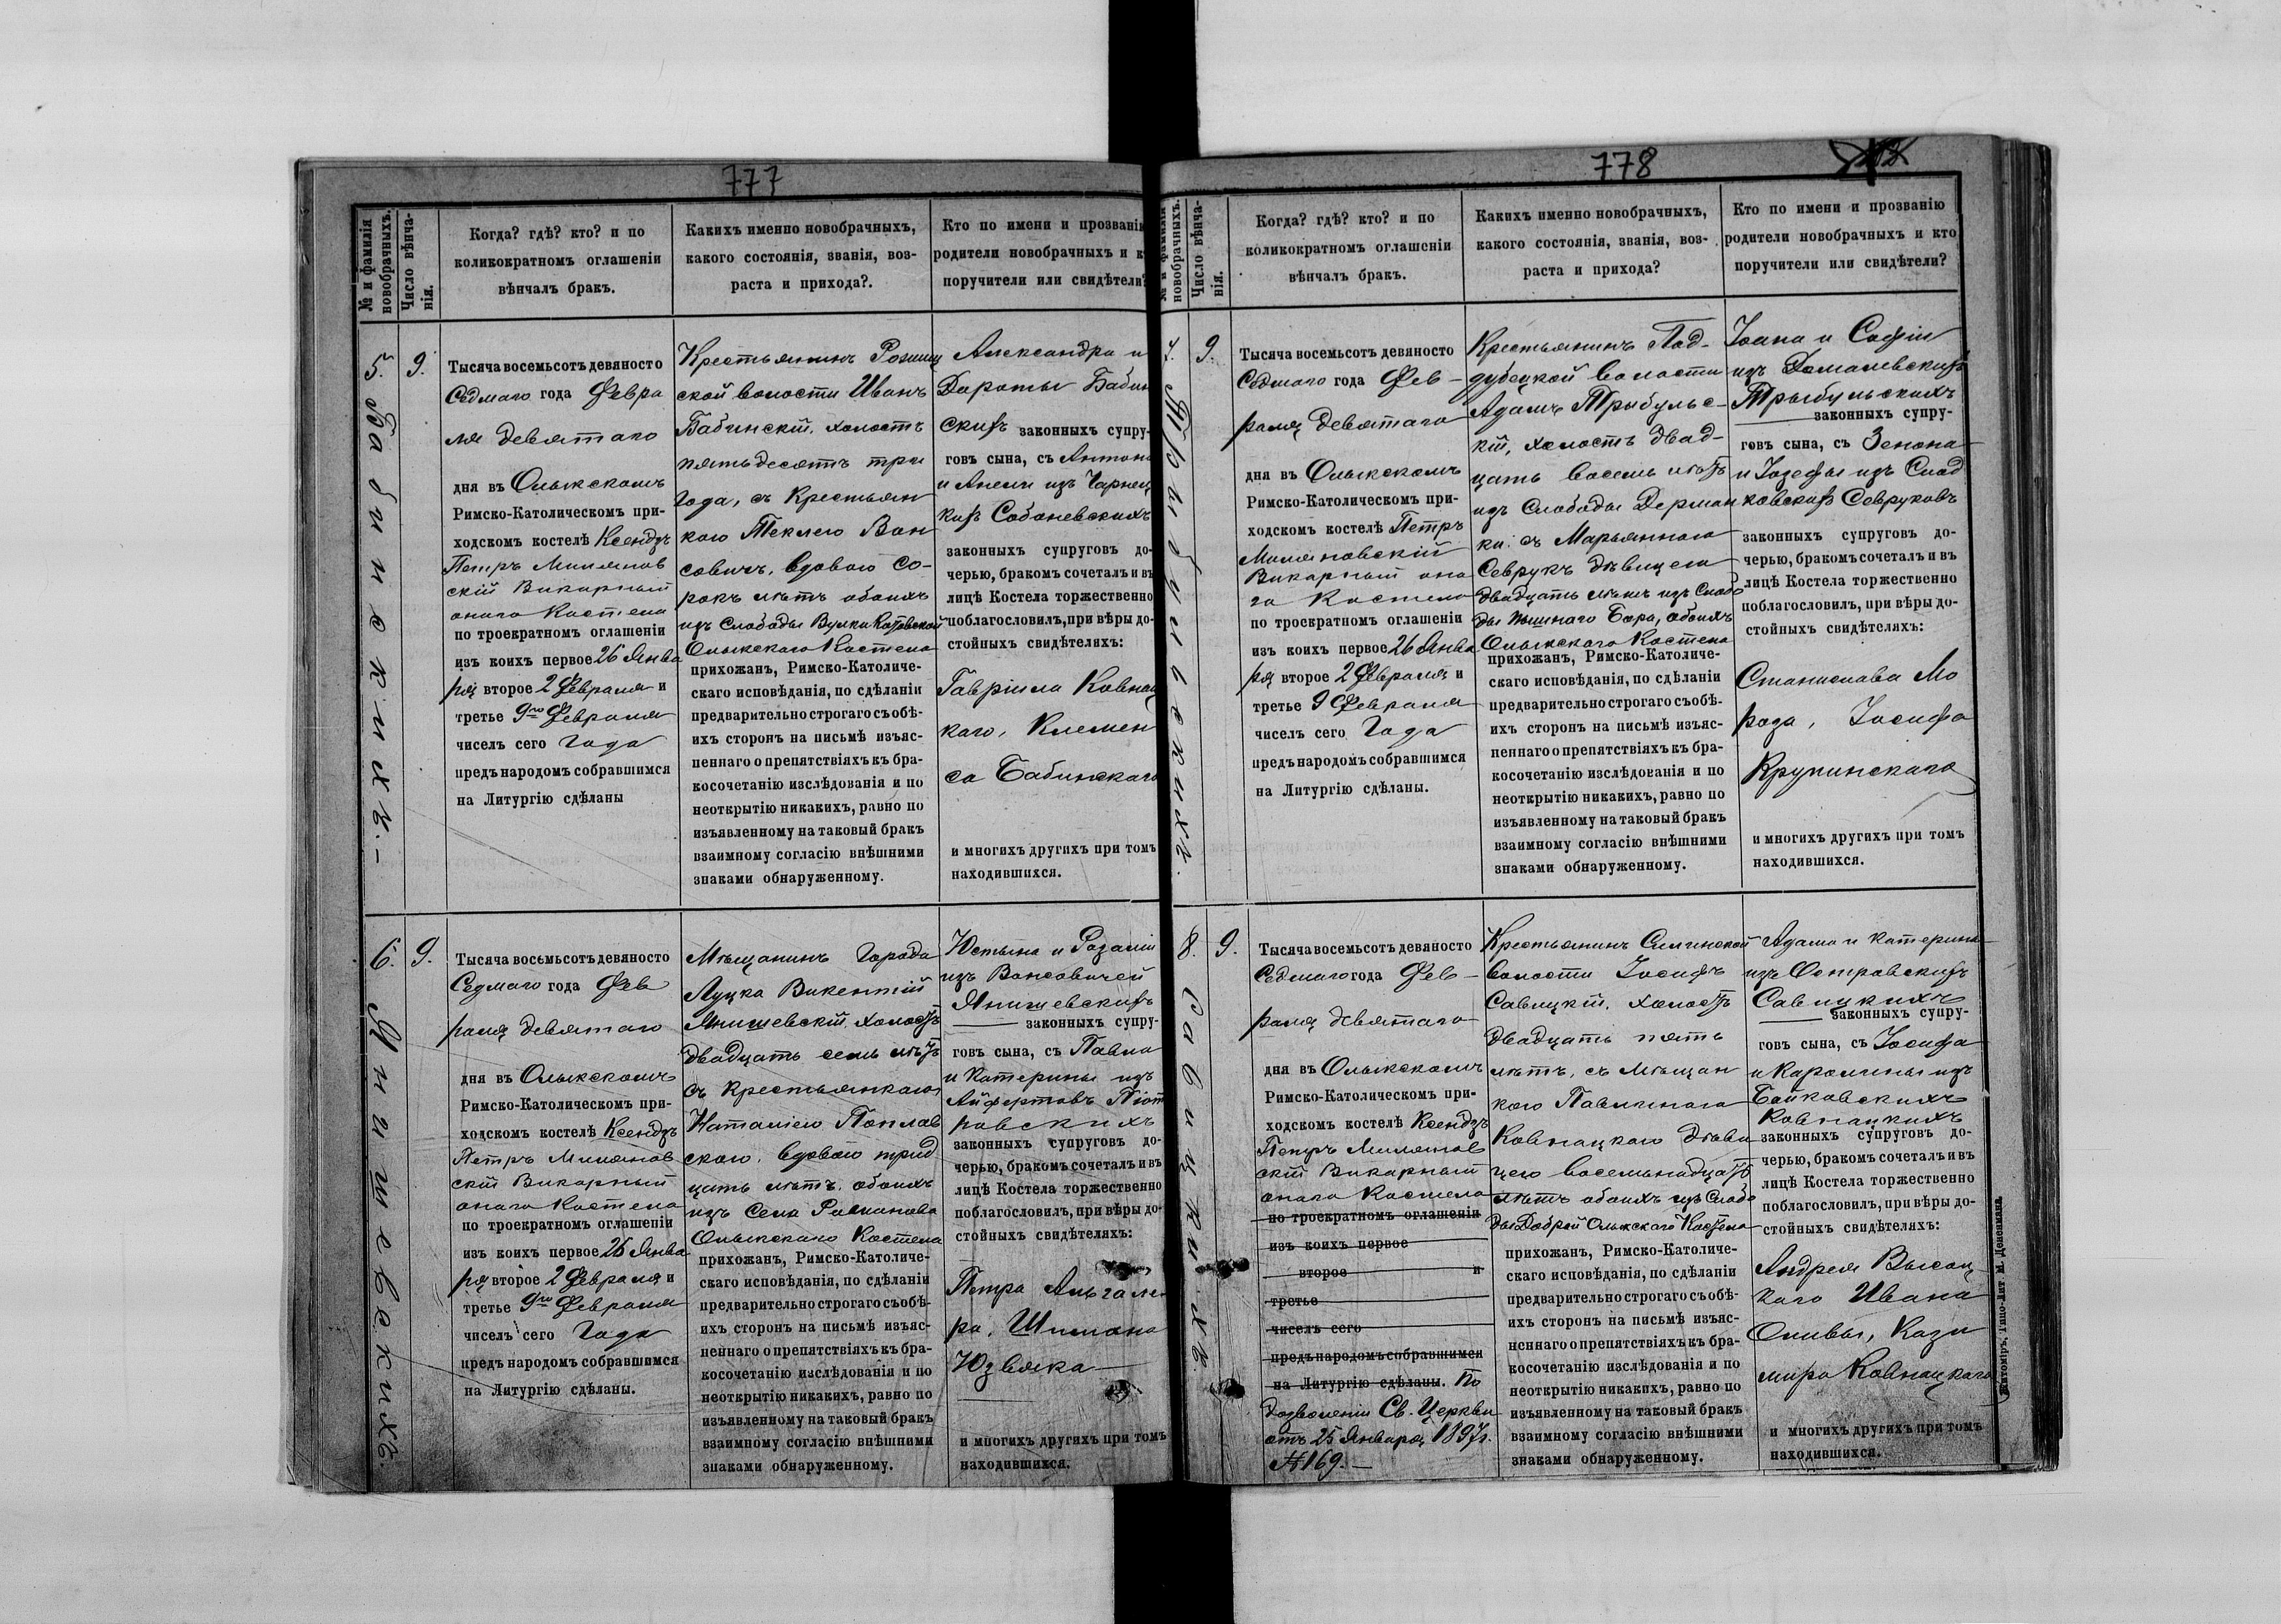 777
№ и фамилія новобрачныхъ.
Число вѣнча-
нія.
Когда? гдѣ? кто? и по
коликократномъ оглашеніи
вѣнчалъ бракъ.
Какихъ именно новобрачныхъ,
какого состоянія, званія, воз-
раста и прихода?.
Кто по имени и прозванію
родители новобрачныхъ и к
поручители или свидѣтели?
5.
Бабинскихъ.–
9.
Тысяча восемьсотъ девяносто
Седмаго года Февра
ля девятаго
дня въ Олыкскомъ
Римско-Католическомъ при-
ходскомъ костелѣ Ксендзъ
Петръ Милянов
скій Викарный
онаго Костела
по троекратномъ оглашеніи
изъ коихъ первое 26 Янва
ря второе 2 Февраля и
третье 9го Февраля
чиселъ сего Года
предъ народомъ собравшимся
на Литургію сдѣланы
Крестьянинъ Рожищ
ской волости Иванъ
Бабинскій, холостъ
пятьдесятъ три
Года, съ Крестьян
кою Теклею Ван
совичъ, вдовою со-
рокъ лѣтъ обоихъ
изъ Слободы Вулки Котовской
Олыкскаго Костела
прихожанъ, Римско-Католиче-
скаго исповѣданія, по сдѣланіи
предварительно строгаго съ обѣ-
ихъ сторонъ на письмѣ изъяс-
неннаго о препятствіяхъ къ бра-
косочетанію изслѣдованія и по
неоткрытію никакихъ, равно по
изъявленному на таковый бракъ
взаимному согласію внѣшними
знаками обнаруженному.
Александра и
Дороты Бабин
скихъ законныхъ супру-
говъ сына, съ Антона
и Анели изъ Чарнец
кихъ Собаневскихъ
законныхъ супруговъ до-
черью, бракомъ сочеталъ и въ
лицѣ Костела торжественно
поблагословилъ, при вѣры до-
стойныхъ свидѣтеляхъ:
Гавріила Ковнац
каго, Клемен
са Бабинскаго
и многихъ другихъ при томъ
находившихся.
6.
Янишевскихъ.
9.
Тысяча восемьсотъ девяносто
Седмаго года Фев
раля девятаго
дня въ Олыкскомъ
Римско-Католическомъ при-
ходскомъ костелѣ Ксендзъ
Петръ Милянов
скій Викарный
онаго Костела
по троекратномъ оглашеніи
изъ коихъ первое 26 Янва
ря второе 2 Февраля и
третье 9го Февраля
чиселъ сего Года
предъ народомъ собравшимся
на Литургію сдѣланы.
Мѣщанинъ Города
Луцка Викентій
Янишевскій, холостъ
двадцать семь лѣтъ
съ Крестьянкою
Наталіею Поплав
скою, вдовою трид
цать лѣтъ, обоихъ
изъ Села Романова
Олыкскаго Костела
прихожанъ, Римско-Католиче-
скаго исповѣданія, по сдѣланіи
предварительно строгаго съ обѣ-
ихъ сторонъ на письмѣ изъяс-
неннаго о препятствіяхъ къ бра-
косочетанію изслѣдованія и по
неоткрытію никакихъ, равно по
изъявленному на таковый бракъ
взаимному согласію внѣшними
знаками обнаруженному.
Юстына и Розаліи
изъ Вансовичей
Янишевскихъ
законныхъ супру-
говъ сына, съ Павла
и Катерины изъ
Айфертовъ Піот
ровскихъ
законныхъ супруговъ до-
черью, бракомъ сочеталъ и въ
лицѣ Костела торжественно
поблагословилъ, при вѣры до-
стойныхъ свидѣтеляхъ:
Петра
ра, Шимона
Юзвяка
и многихъ другихъ при томъ
находившихся.
778
№ и фамилія новобрачныхъ.
Число вѣнча-
нія.
Когда? гдѣ? кто? и по
коликократномъ оглашеніи
вѣнчалъ бракъ.
Какихъ именно новобрачныхъ,
какого состоянія, званія, воз-
раста и прихода?
Кто по имени и прозванію
родители новобрачныхъ и кто
поручители или свидѣтели?
7.
Трыбульскихъ.
9.
Тысяча восемьсотъ девяносто
Седмаго года Фев-
раля девятаго
дня въ Олыкскомъ
Римско-Католическомъ при-
ходскомъ костелѣ Петръ
Миляновскій
Викарный она
го Костела
по троекратномъ оглашеніи
изъ коихъ первое 26 Янва
ря второе 2 Февраля и
третье 9 Февраля
чиселъ сего Года
предъ народомъ собравшимся
на Литургію сдѣланы.
Крестьянинъ Под-
дубецкой волости
Адамъ Трыбульс-
кій, холостъ двад-
цать восемь лѣтъ
изъ Слободы Дерман
ки. съ Марьянною
Севрукъ дѣвицею
двадцать лѣтъ изъ Слобо
ды Пышнаго Бора, обоихъ
Олыкскаго Костела
прихожанъ, Римско-Католиче-
скаго исповѣданія, по сдѣланіи
предварительно строгаго съ обѣ-
ихъ сторонъ на письмѣ изъяс-
неннаго о препятствіяхъ къ бра-
косочетанію изслѣдованія и по
неоткрытію никакихъ, равно по
изъявленному на таковый бракъ
взаимному согласію внѣшними
знаками обнаруженному.
Іоана и Софіи
изъ Домалевскихъ
Трыбульскихъ
законныхъ супру-
говъ сына, съ Зенона
и Іозефы изъ Слад
ковскихъ Севруковъ
законныхъ супруговъ до-
черью, бракомъ сочеталъ и въ
лицѣ Костела торжественно
поблагословилъ, при вѣры до-
стойныхъ свидѣтеляхъ:
Станислава Мо
роза, Іосифа
Крупинскаго
и многихъ другихъ при томъ
находившихся.
8.
Савицкихъ.
9.
Тысяча восемьсотъ девяносто
Седмаго года Фев-
раля девятаго
дня въ Олыкскомъ
Римско-Католическомъ при-
ходскомъ костелѣ Ксендзъ
Петръ Милянов
скій Викарный
онаго Костела
по троекратномъ оглашеніи
изъ коихъ первое
второе и
третье
чиселъ сего
предъ народомъ собравшимся
на Литургію сдѣланы. По
дозволеніи Св. Церкви
отъ 25 Января 1897г.
№169.–
Крестьянинъ Силинской
Волости Іосифъ
Савицкій, холостъ
двадцать пять
лѣтъ, съ Мѣщан
кою Павлиною
Ковнацкою дѣви
цею восемьнадцать
лѣтъ обоихъ изъ Слобо
ды Доброй Олыкскаго Костела
прихожанъ, Римско-Католиче-
скаго исповѣданія, по сдѣланіи
предварительно строгаго съ обѣ-
ихъ сторонъ на письмѣ изъяс-
неннаго о препятствіяхъ къ бра-
косочетанію изслѣдованія и по
неоткрытію никакихъ, равно по
изъявленному на таковый бракъ
взаимному согласію внѣшними
знаками обнаруженному.
Адама и Катерины
изъ Островскихъ
Савицкихъ
законныхъ супру-
говъ сына, съ Іосифа
и Каролины изъ
Байковскихъ
Ковнацкихъ
законныхъ супруговъ до-
черью, бракомъ сочеталъ и въ
лицѣ Костела торжественно
поблагословилъ, при вѣры до-
стойныхъ свидѣтеляхъ:
Андрея Высоц
каго Ивана
Оливы, Кази
мира Ковнацкаго
и многихъ другихъ при томъ
находившихся.
Житоміръ, Типо-Лит М. Дененмана